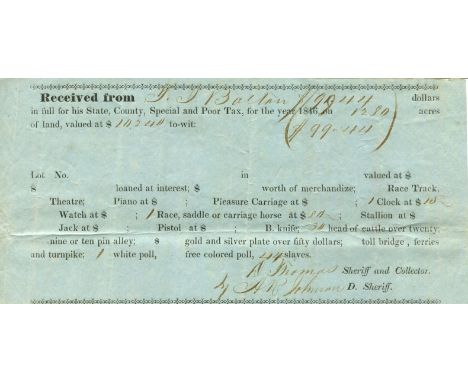 Received from T. S. Bolton $99.44 dollars
in full for his State, County, Special and Poor Tax, for the year 1846, on 1280 acres
of land, valued at $ 10240 to-wit: $99.44
Lot No. in valued at
$ loaned at interest; $ worth of merchandize; Race Track.
Theatre; Piano at $ ; Pleasure Carriage at $ 1 Clock at $ 10
Watch at $ ; 1 Race, saddle or carriage horse at $ 80 Stallion at $
Jack at $ Pistol at $ B. knife; 30 head of cattle over twenty:
nine or ten pin alley; $ gold and silver plate over fifty dollars; toll bridge, ferries
and turnpike; 1 white poll, free colored poll, 44 slaves.
Thomas Sheriff and Collector.
by Johnson D. Sheriff.